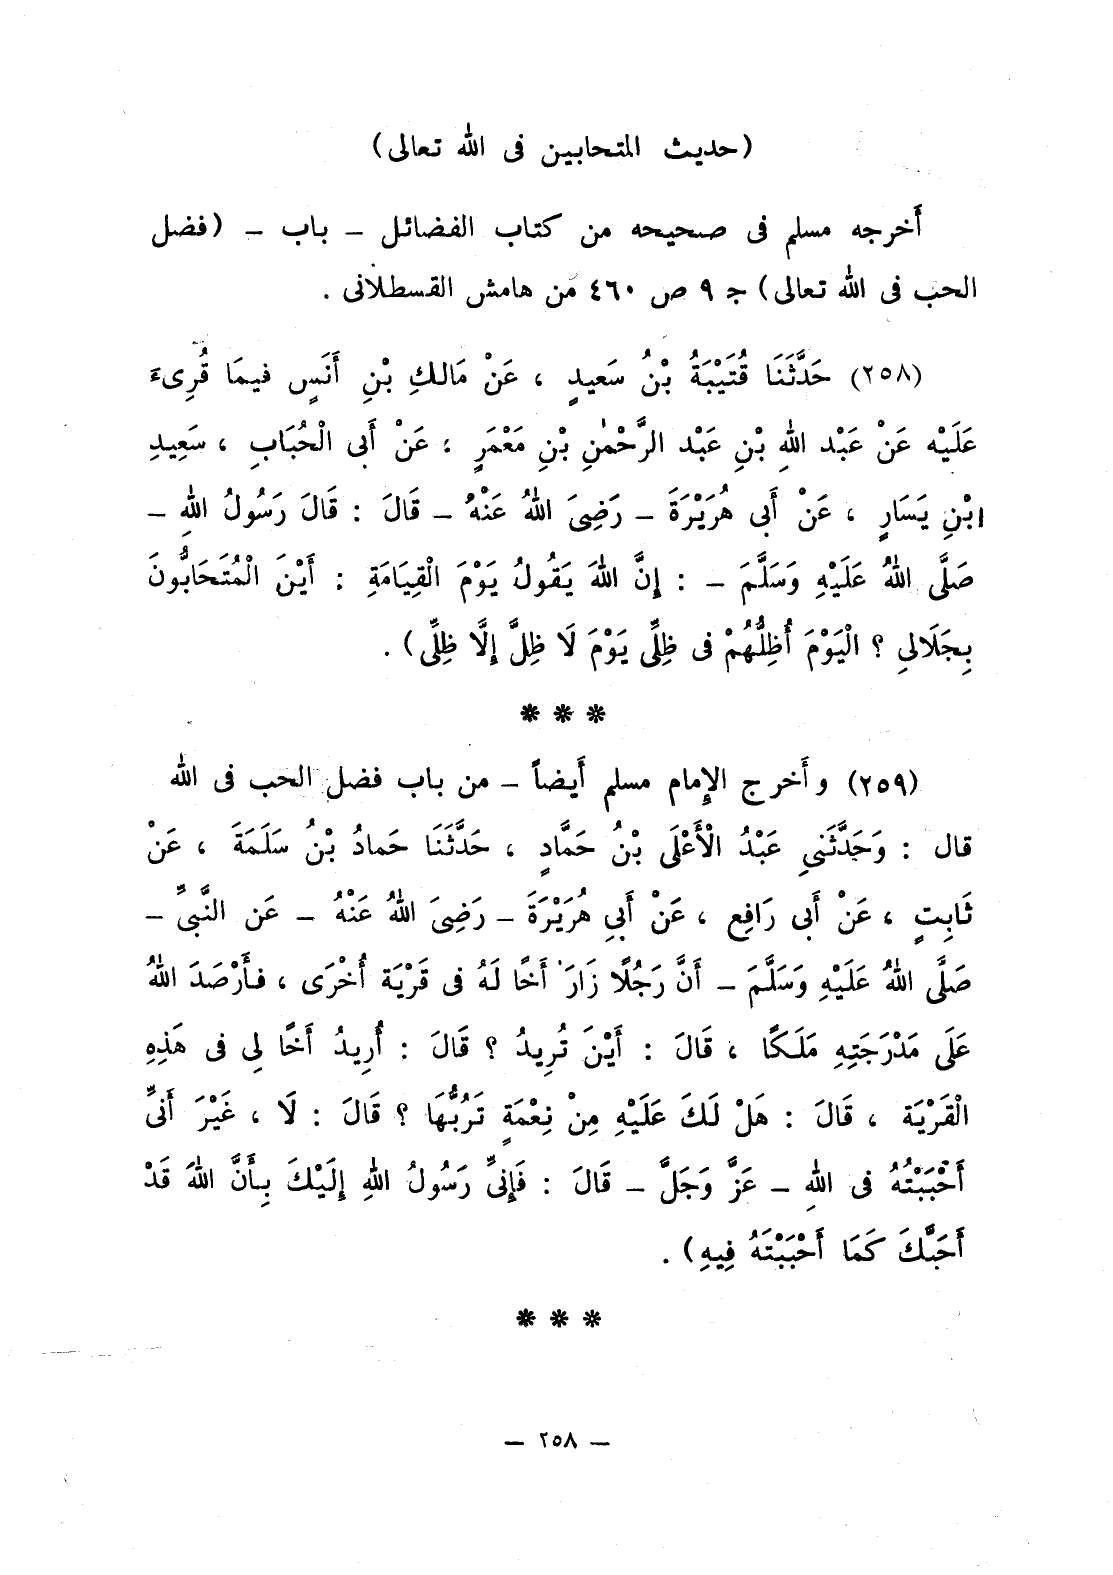 (حديث المتحابين فى الله تعالى)
أَخرجه مسلم فى صحيحه من كتاب الفضائل – باب – (فضل
الحب فى الله تعالى) جـ ٩ ص ٤٦٠ من هامش القسطلانى .
(٢٥٨) حَدَّثَنَا قُتَيْبَةُ بْنُ سَعيدٍ ، عَنْ مَالكِ بْنِ أَنَسٍ فيمَا قُرِىءَ
عَلَيْه عَنْ عَبْد اللهِ بْنِ عَبْد الرَّحْمٰنِ بْنِ مَعْمَرٍ ، عَنْ أَبى الْحُبَابِ ، سَعِيدِ
ابْنِ يَسَارٍ ، عَنْ أَبى هُرَيْرَةَ – رَضِىَ اللهُ عَنْهُ – قَالَ : قَالَ رَسُولُ اللهِ –
صَلَّى اللهُ عَلَيْهِ وَسَلَّمَ – : إِنَّ اللهَ يَقُولُ يَوْمَ الْقِيَامَةِ : أَيْنَ الْمُتَحَابُّونَ
بِجَلَالىِ ؟ الْيَوْمَ أُظِلُّهُمْ فى ظِلِّى يَوْمَ لَا ظِلَّ إِلَّا ظِلِّى) .
* * *
(٢٥٩) وأَخرج الإِمام مسلم أَيضاً – من باب فضل الحب فى الله
قال : وَحَدَّثَنىِ عَبْدُ الْأَعْلَى بْنُ حَمَّادٍ ، حَدَّثَنَا حَمادُ بْنُ سَلَمَةَ ، عَنْ
ثَابِتٍ ، عَنْ أَبى رَافِعٍ ، عَنْ أَبىِ هُرَيْرَةَ – رَضِىَ اللهُ عَنْهُ – عَن النَّبىِّ –
صَلَّى اللهُ عَلَيْهِ وَسَلَّمَ – أَنَّ رَجُلًا زَارَ أَخًا لَهُ فى قَرْيَة أُخْرَى ، فَأَرْصَدَ اللهُ
عَلَى مَدْرَجَتِهِ مَلَكًا ، قَالَ : أَيْنَ تُرِيدُ ؟ قَالَ : أُرِيدُ أَخًا لِى فى هَذِهِ
الْقَرْيَة ، قَالَ : هَلْ لَكَ عَلَيْهِ مِنْ نِعْمَةٍ تَرُبُّهَا ؟ قَالَ : لَا ، غَيْرَ أَنىِّ
أَحْبَبْتُهُ فى اللهِ – عَزَّ وَجَلَّ – قَالَ : فَإِنىِّ رَسُولُ اللهِ إِلَيْكَ بِأَنَّ اللهَ قَدْ
أَحَبَّكَ كَمَا أَحْبَبْتَهُ فِيهِ) .
* * *
– ٢٥٨ –